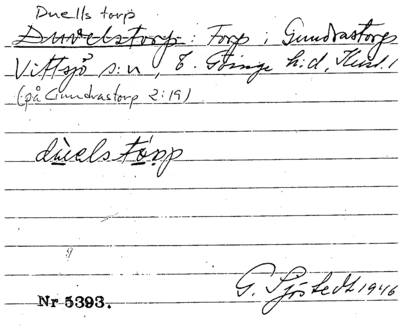 Duells torp
Duvelstorp: Torp i Gundrastorps
Vittsjö s:n, V. Göinge h:d,
(på Gundrastorp 2:19)
dùelstòrp
G. Sjöstedt 1946
Nr 5393.